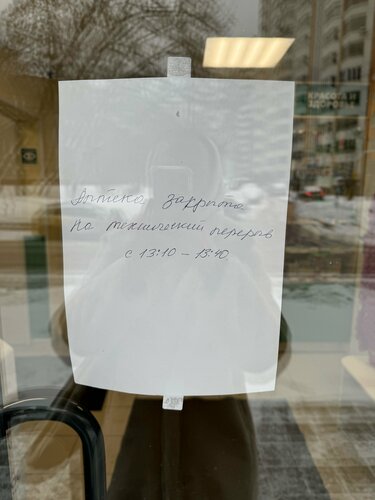 Аптека закрыта
на технический перерыв
с 13:10 – 13:40
КРАСОТА И
ЗДОРОВЬЕ